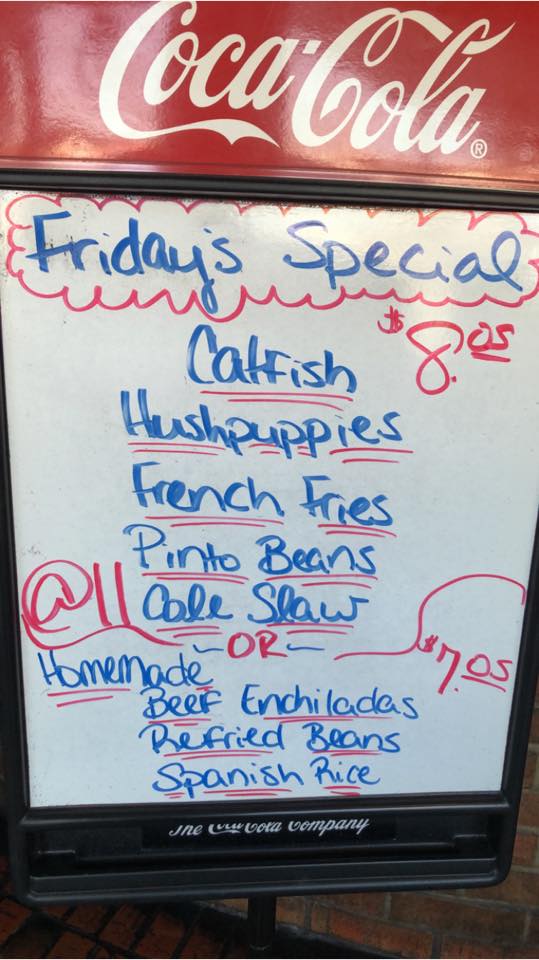 Coca-Cola®
Friday's Special
$8.05
Catfish
Hushpuppies
French Fries
Pinto Beans
@11 Cole Slaw
~OR~
$7.05
Homemade
Beef Enchiladas
Refried Beans
Spanish Rice
The Coca-Cola Company